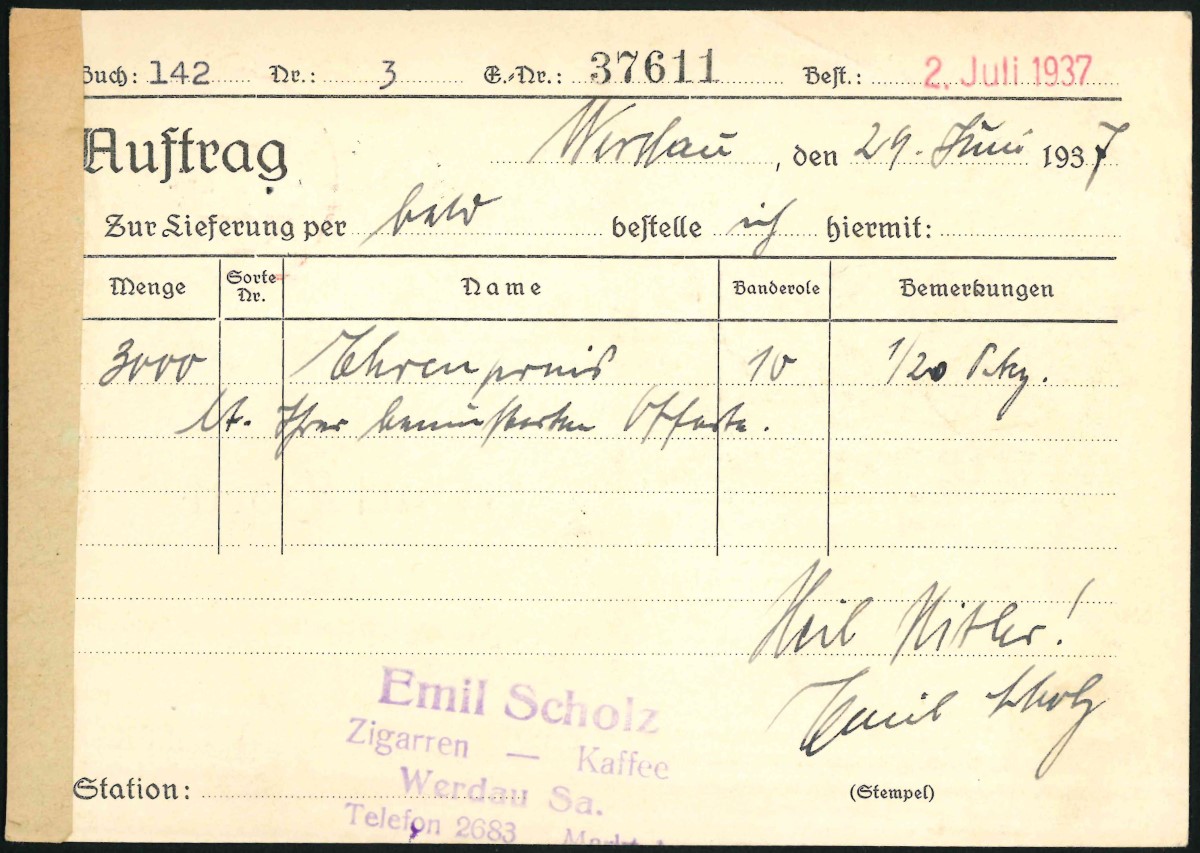 Buch: 142 Nr.: 3 E.-Nr.: 37611 Best.: 2. Juli 1937
Auftrag Werdau, den 29. Juni 1937
Zur Lieferung per bald bestelle ich hiermit:
Menge Sorte Nr. Name Banderole Bemerkungen
3000 Ehrenpreis 10 1/20 Pckg.
lt. Ihrer bemusterten Offerte.
Heil Hitler!
Emil Scholz
Emil Scholz
Zigarren — Kaffee
Werdau Sa.
Station: (Stempel)
Telefon 2683